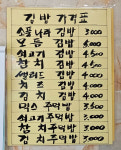 김밥 가격표
소풀나라 김밥 3.000
모듬 김밥 4.000
쇠고기 김밥 4.000
참치 김밥 4.000
샐러드 김밥 4.000
치즈 김밥 4.000
김치 김밥 4.000
돈까스 주먹밥 3.500
쇠고기 주먹밥 3.000
참치 주먹밥 3.000
김치 주먹밥 3.000